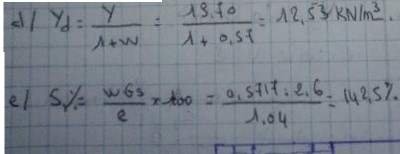 d/ γd = γ/(1+w) = 19.70/(1+0,57) = 12,53 KN/m³.
e/ S% = wGs/e × 100 = 0,5717 . 2,6/1.04 = 142,5%.